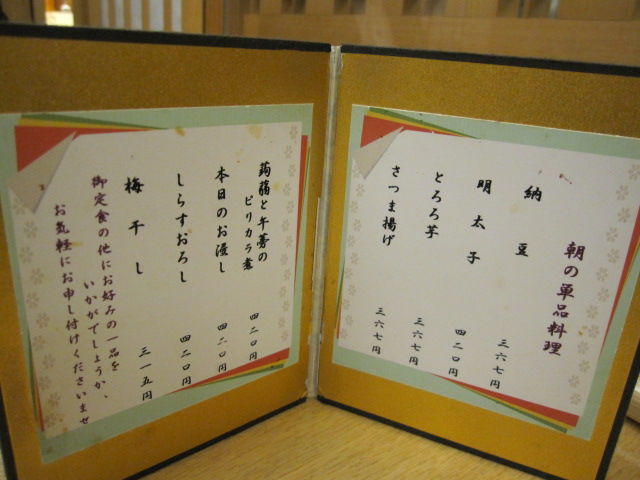 朝の単品料理
納豆 三六七円
明太子 四二〇円
とろろ芋 三六七円
さつま揚げ 三六七円
蒟蒻と牛蒡の
ピリカラ煮 四二〇円
本日のお浸し 四二〇円
しらすおろし 四二〇円
梅干し 三一五円
御定食の他にお好みの一品を
いかがでしょうか、
お気軽にお申し付けくださいませ